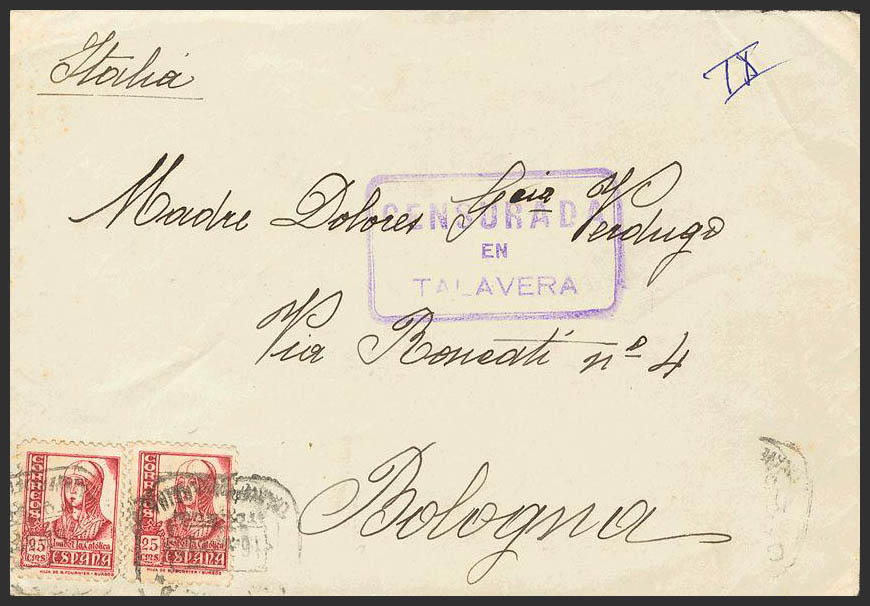 Italia
IX
Madre Dolores Gcia Verdugo
CENSURADA
EN
TALAVERA
Via Roncati nº 4
Bologna
CORREOS
25
CTS
Isabel la Católica
ESPAÑA
HIJA DE B. FOURNIER - BURGOS
CORREOS
25
CTS
Isabel la Católica
ESPAÑA
HIJA DE B. FOURNIER - BURGOS